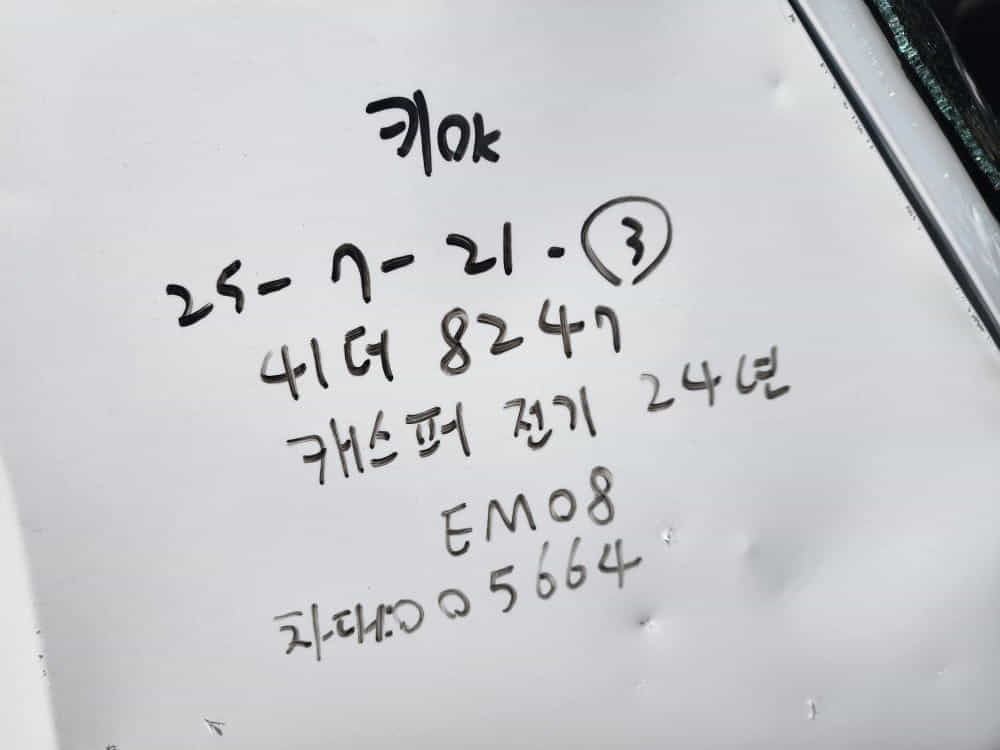 키OK
25-7-21.③
41더 8247
캐스퍼 전기 24년
EM08
차대:005664